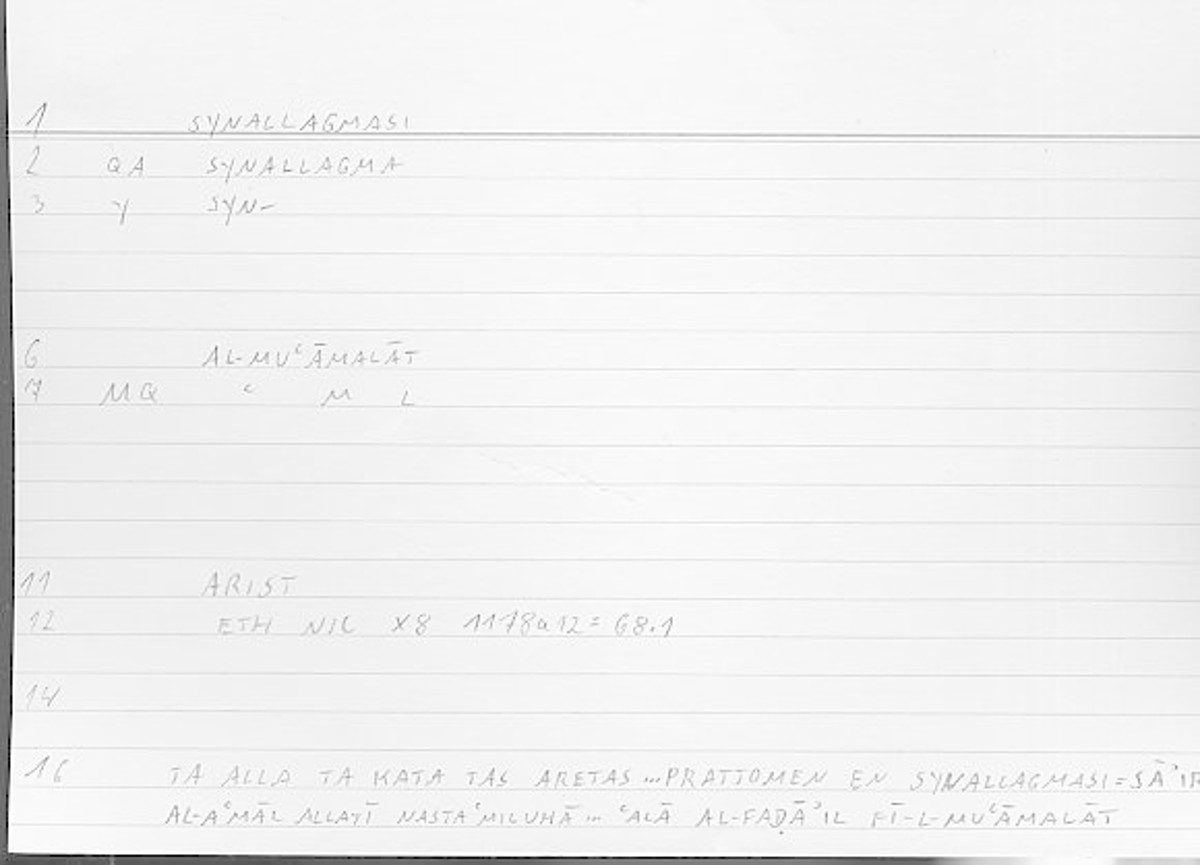 1 SYNALLAGMASI
2 QA SYNALLAGMA
3 Y SYN-
6 AL-MUʿĀMALĀT
7 MQ ʿ M L
11 ARIST
12 ETH NIC X8 1178a12=68.1
14
16 TA ALLA TA KATA TAS ARETAS...PRATTOMEN EN SYNALLAGMASI=SĀʾIR
AL-AʿMĀL ALLATĪ NASTAʿMILUHĀ... ʿALĀ AL-FAḌĀʾIL FĪ-L-MUʿĀMALĀT